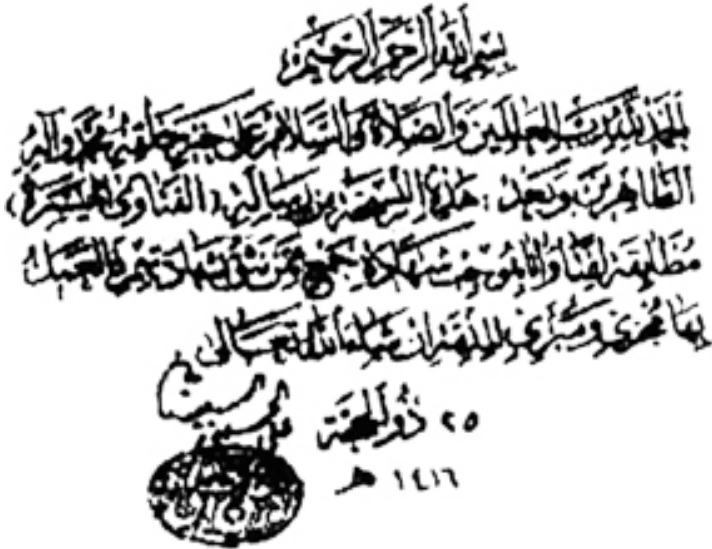 بسم الله الرحمن الرحيم
الحمد لله رب العالمين والصلاة والسلام على خير خلقه محمد وآله
الطاهرين وبعد : هذه النسخة من رسالة ( الفتاوى الميسرة )
مطابقة لفتاوانا بموجب شهادة جمع ممن نثق بشهادتهم فالعمل
بها مجزئ ومبرئ للذمة ان شاء الله تعالى
٢٥ ذو الحجة
١٤١٦ هـ